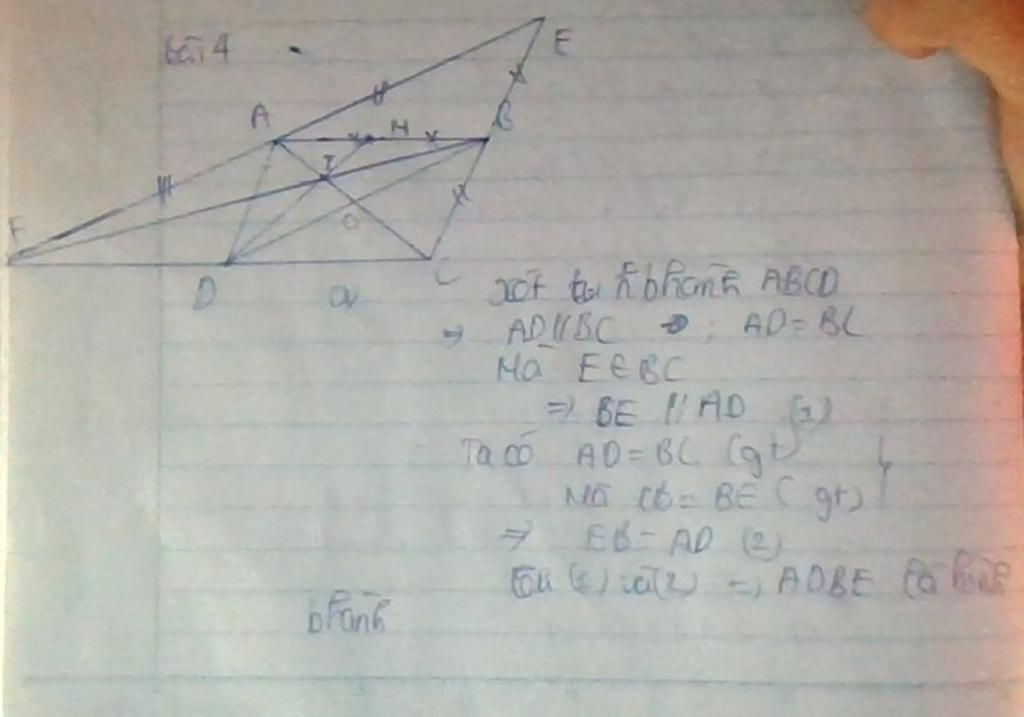 bài 4
E
A
M
B
I
F
O
D
C
a,
xét tứ hbhành ABCD
⇒ AD//BC ; AD = BC
Mà E ∈ BC
⇒ BE // AD (1)
Ta có AD = BC (gt)
Mà CB = BE (gt)
⇒ EB = AD (2)
từ (1) và (2) ⇒ ADBE là hình
bhành